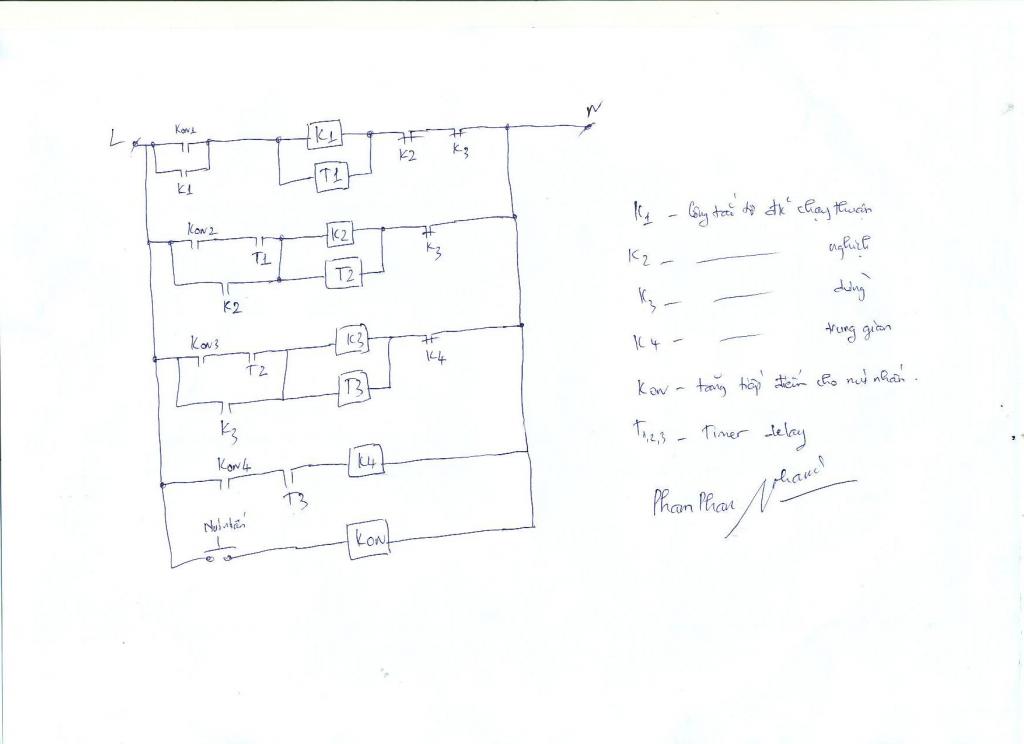 L
N
Kon1
K1
K1
T1
K2
K3
Kon2
T1
K2
K2
T2
K3
Kon3
T2
K3
K3
T3
K4
Kon4
T3
K4
Kon
K1 – Công tắc tơ đk chạy thuận
K2 – nghịch
K3 – dừng
K4 – trung gian
Kon – tăng tiếp điểm cho nút nhấn.
T1,2,3 – Timer delay
Pham Phan